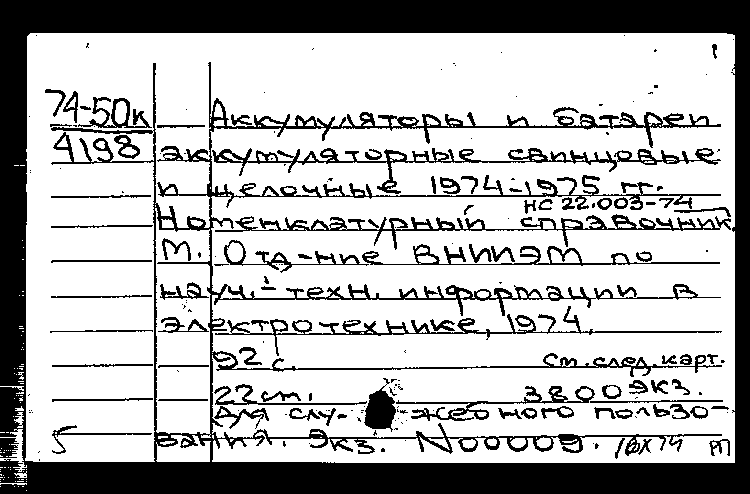 74-50к Аккумуляторы и батареи
4198 аккумуляторные свинцовые
и щелочные 1974-1975 гг.
НС 22.003-74
Номенклатурный справочник.
М. Отд-ние ВНИИЭМ по
науч.-техн. информации в
электротехнике, 1974.
92 с. См. след. карт.
22 см. 3800 экз.
Для слу- жебного пользо-
5 вания. Экз. N00009. 16X74 РП